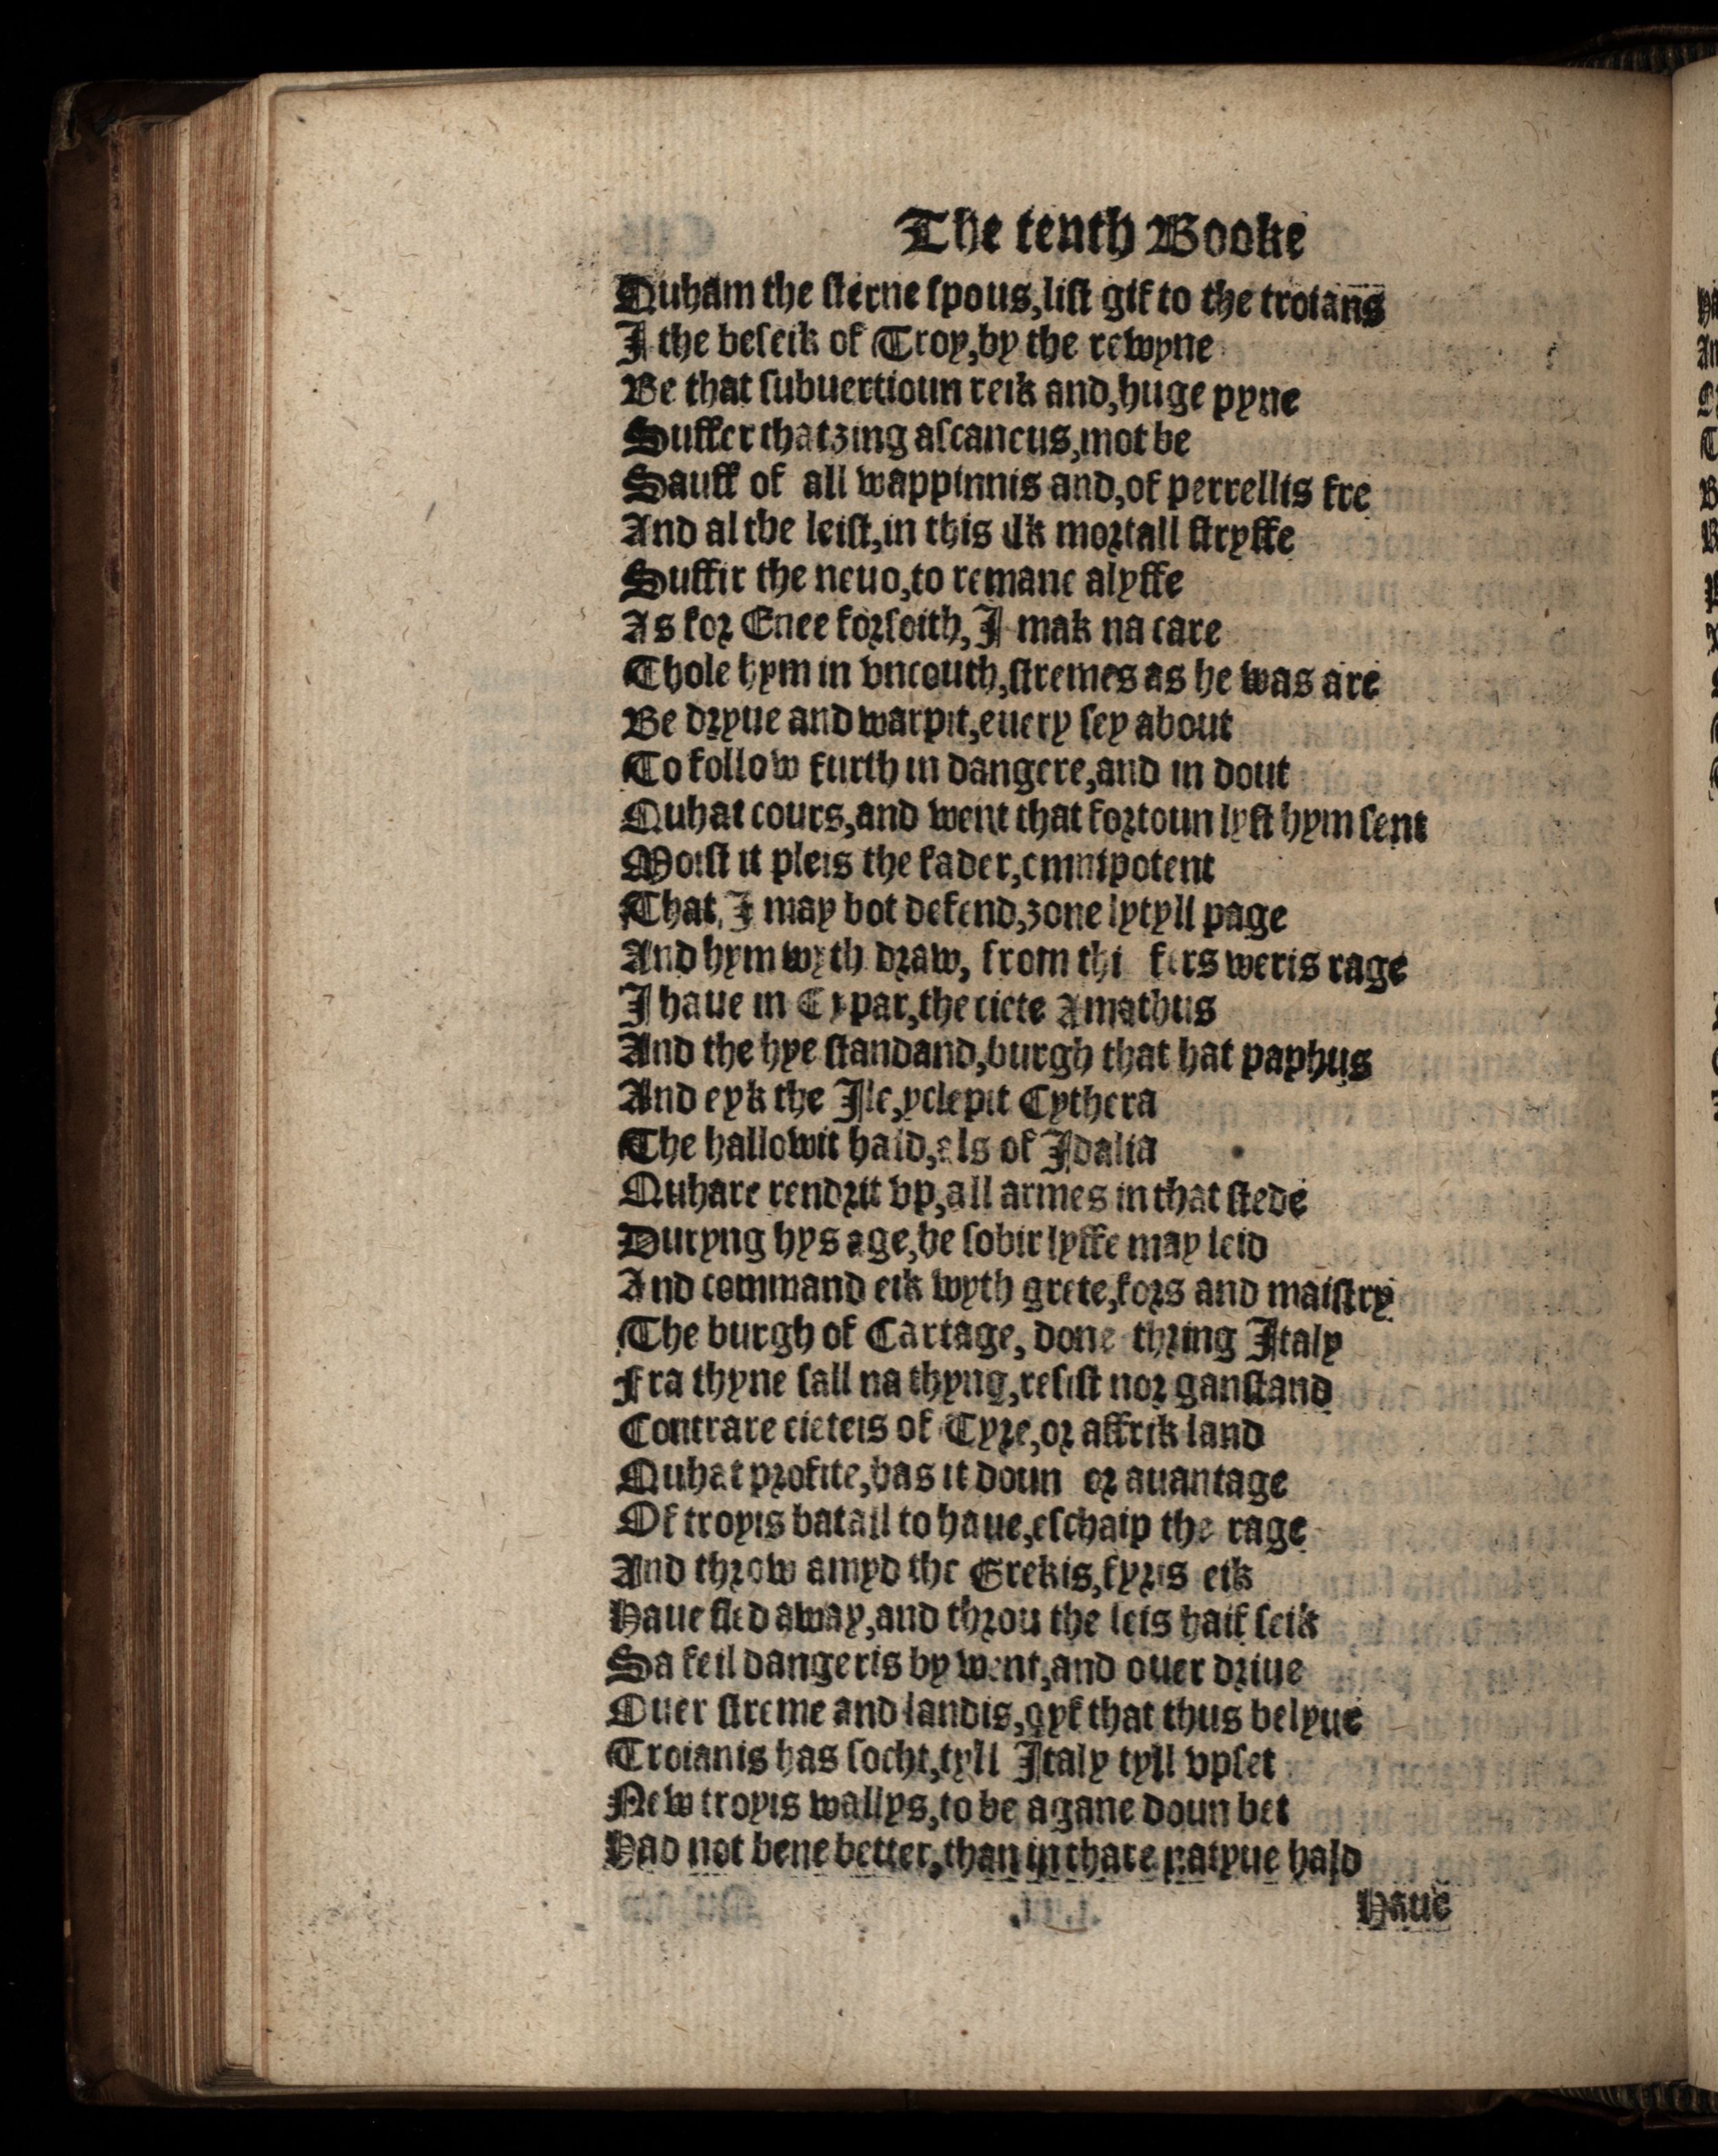 The tenth Booke
Quham the sterne spous,list gif to the troians
I the beseik of Troy,by the rewyne
Be that subuertioun reik and,huge pyne
Suffer that ȝing ascaneus,mot be
Sauff of all wappinnis and,of perrellis fre
And al the leist,in this ilk mortall stryffe
Suffir the neuo,to remane alyffe
As for Enee forsoith,I mak na care
Thole hym in vncouth,stremes as he was are
Be dryue and warpit,euery sey about
To follow furth in dangere,and in dout
Quhat cours,and went that fortoun lyst hym sent
Moist it pleis the fader,omnipotent
That I may bot defend,ȝone lytyll page
And hym wyth draw, from thi fers weris rage
I haue in Cypar,the ciete Amathus
And the hye standand,burgh that hat paphus
And eyk the Ile,yclepit Cythera
The hallowit hald,als of Idalia
Quhare rendrit vp,all armes in that stede
Duryng hys age,he sobir lyffe may leid
And command eik wyth grete,fors and maistry
The burgh of Cartage, done thring Italy
Fra thyne sall na thyng,resist nor ganstand
Contrare cieteis of Tyre,or affrik land
Quhat profite,has it doun or auantage
Of troyis batail to haue,eschaip the rage
And throw amyd the Grekis,fyris eik
Haue fled away,and throu the seis haif seik
Sa feil dangeris by went,and ouer driue
Ouer streme and landis,gyf that thus belyue
Troianis has socht,tyll Italy tyll vpset
New troyis wallys,to be agane doun bet
Had not bene better,than in thare natyue hald
Haue